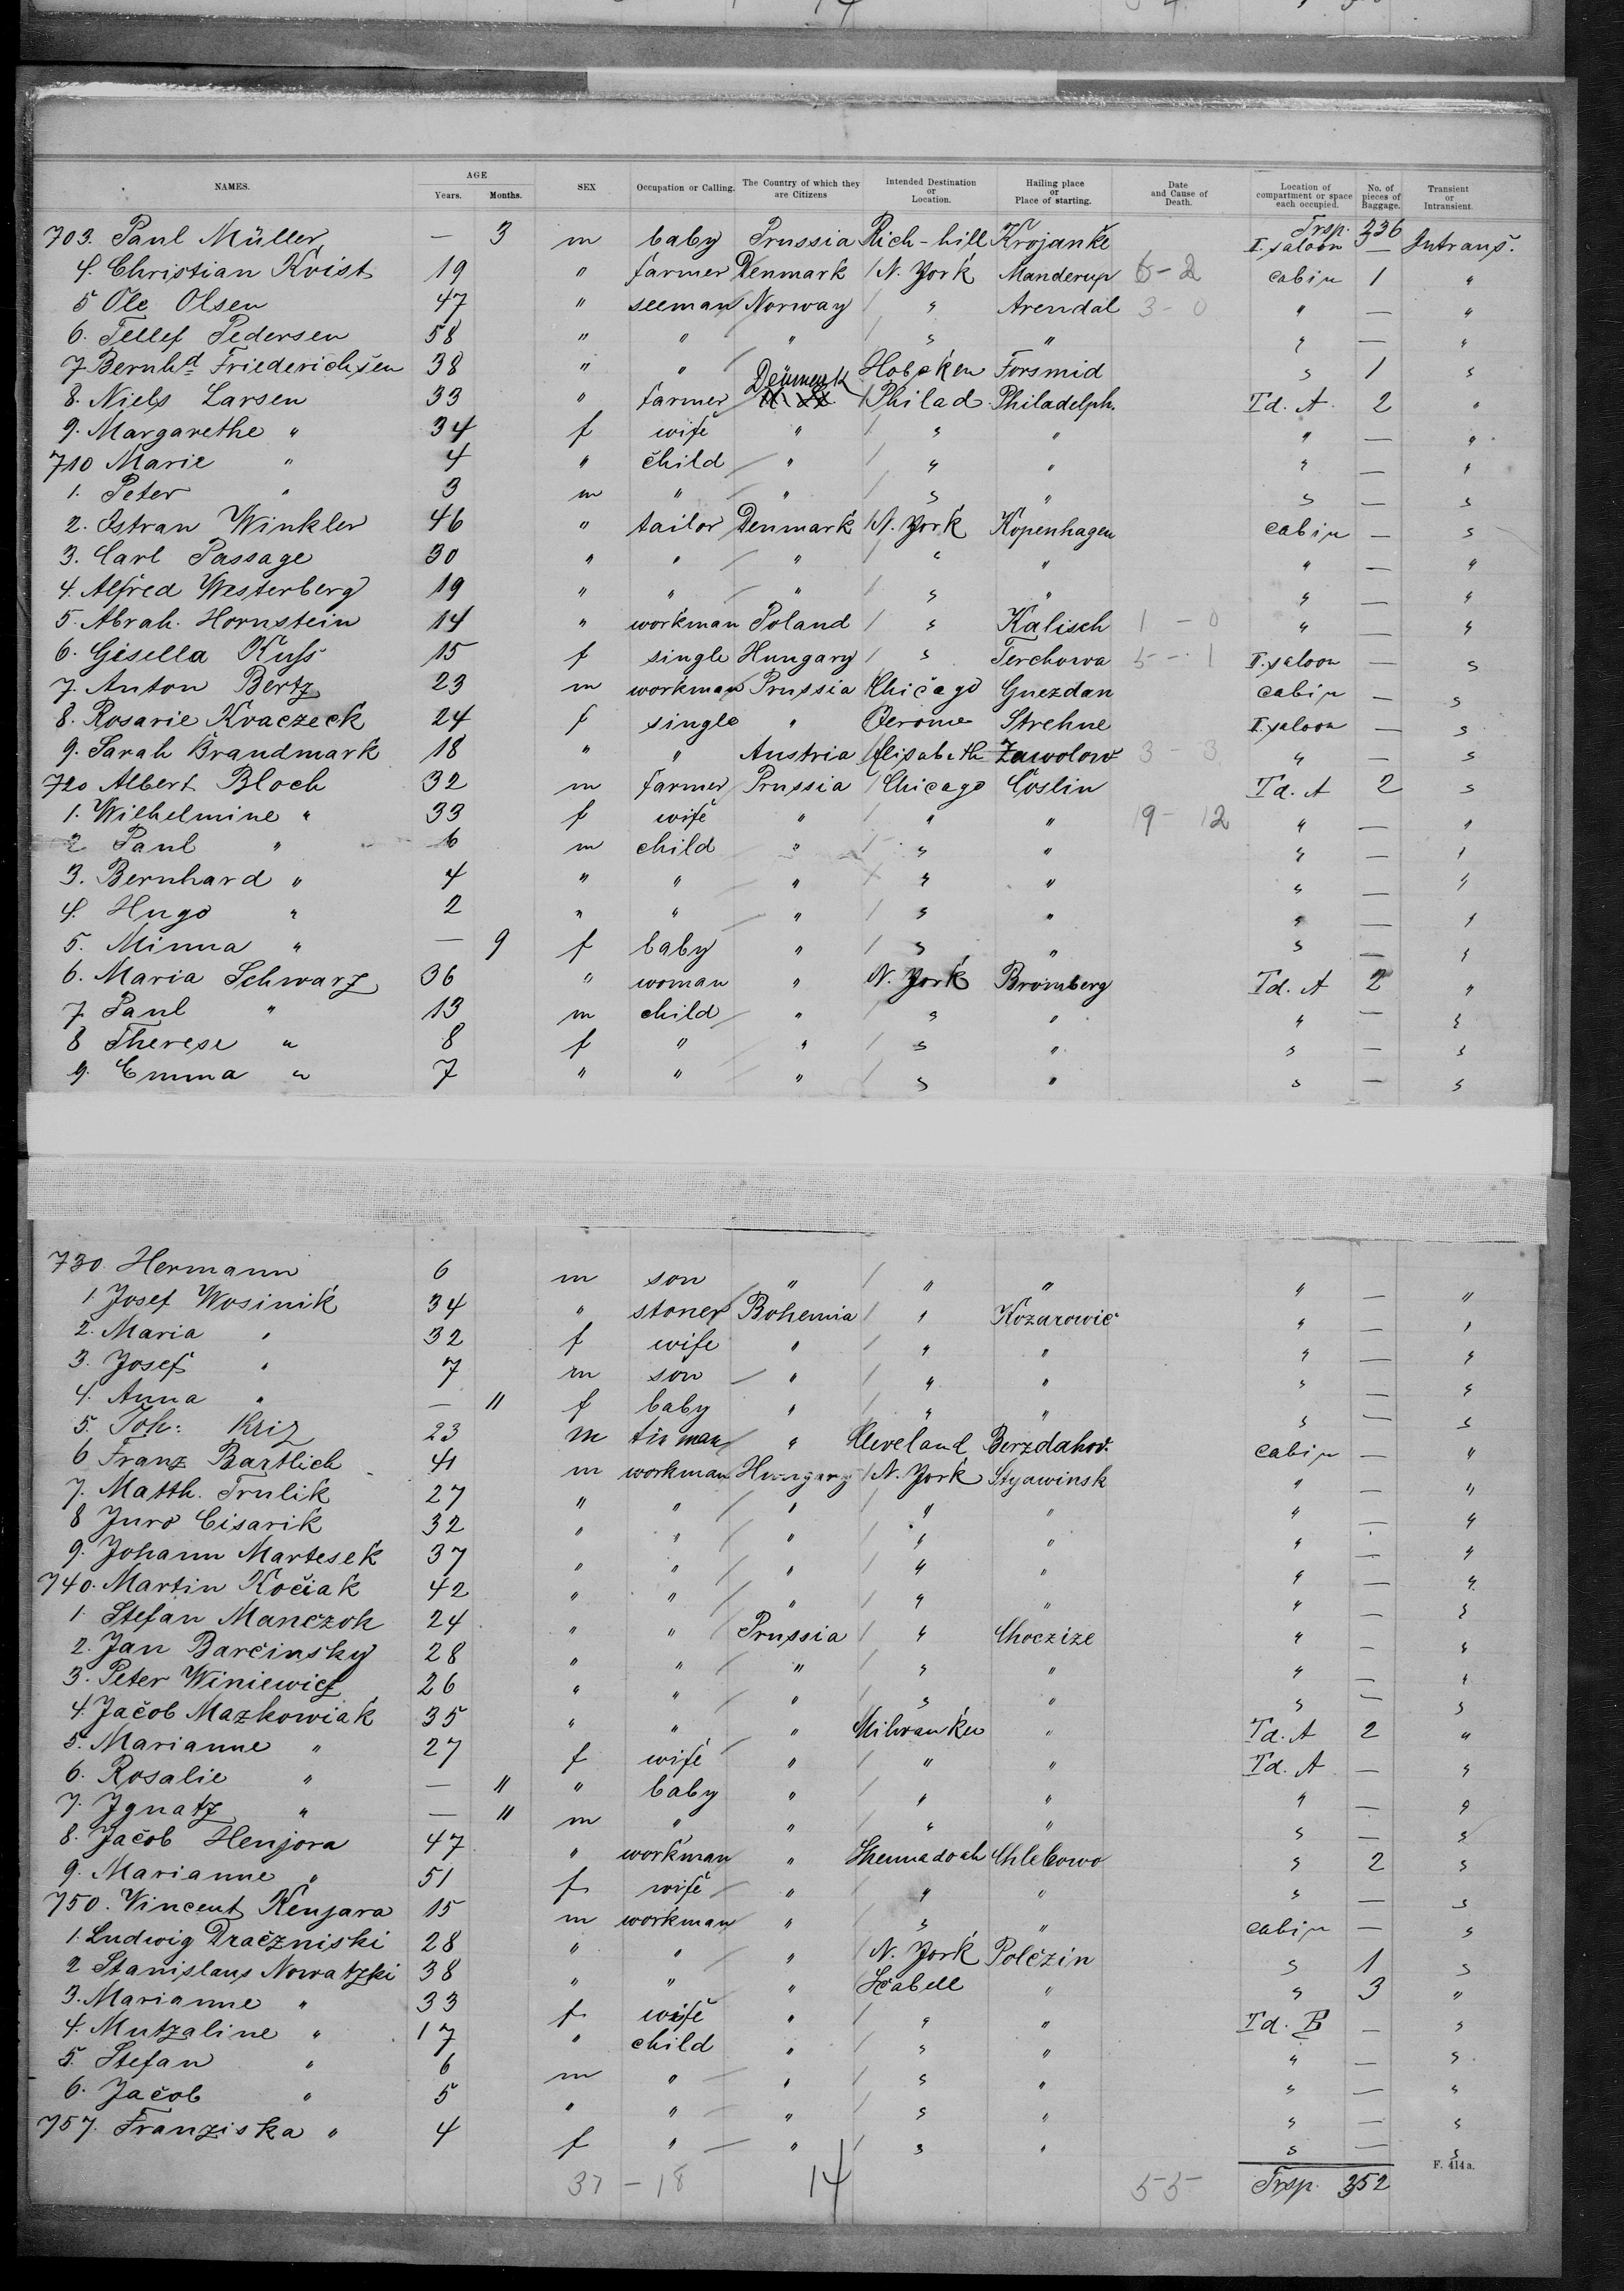 NAMES. AGE Years. Months. SEX Occupation or Calling. The Country of which they are Citizens Intended Destination or Location. Hailing place or Place of starting. Date and Cause of Death. Location of compartment or space each occupied. No. of pieces of Baggage. Transient or Intransient.
Trsp. 336
703. Paul Müller — 3 m baby Prussia Rich-hill Krojanke II. saloon — Intrans.
4. Christian Kvist 19 " farmer Denmark N. York Manderup 6-2 cabin 1 "
5 Ole Olsen 47 " seeman Norway " Arendal 3-0 " — "
6. Tellef Pedersen 58 " " " " " " — "
7 Bernhd Friederichsen 38 " " " Hoboken Forsmid " 1 "
8. Niels Larsen 33 " farmer Denmark Philad. Philadelph. Td. A. 2 "
9. Margarethe " 34 f wife " " " " — "
710 Marie " 4 " child " " " " — "
1. Peter " 3 m " " " " " — "
2. Ostran Winkler 46 " tailor Denmark N. York Kopenhagen cabin — "
3. Carl Passage 30 " " " " " " — "
4. Alfred Westerberg 19 " " " " " " — "
5. Abrah. Hornstein 14 " workman Poland " Kalisch 1-0 " — "
6. Gisella Kuss 15 f single Hungary " Terchowa 5-1 II. saloon — "
7. Anton Bertz 23 m workman Prussia Chicago Gnezdan cabin — "
8. Rosarie Kvaczeck 24 f single " Jerome Strehne II. saloon — "
9. Sarah Brandmark 18 " " Austria Elisabeth Zawolow 3-3 " — "
720 Albert Bloch 32 m farmer Prussia Chicago Cöslin Td. A 2 "
1. Wilhelmine " 33 f wife " " " 9-12 " — "
2 Paul " 6 m child " " " " — "
3. Bernhard " 4 " " " " " " — "
4. Hugo " 2 " " " " " " — "
5. Minna " — 9 f baby " " " " — "
6. Maria Schwarz 36 " woman " N. York Bromberg Td. A 2 "
7. Paul " 13 m child " " " " — "
8 Therese " 8 f " " " " " — "
9. Emma " 7 " " " " " " — "
730. Hermann 6 m son " " " " — "
1. Josef Wosinik 34 " stoner Bohemia " Kozarowic " — "
2. Maria " 32 f wife " " " " — "
3. Josef " 7 m son " " " " — "
4. Anna " — 11 f baby " " " " — "
5. Joh: Kriz 23 m tinman " Cleveland Berzdahov. cabin — "
6 Franz Bartlich 41 m workman Hungary N. York Styawinsk " — "
7. Matth. Trulik 27 " " " " " " — "
8 Juro Cisarik 32 " " " " " " — "
9. Johann Martesek 37 " " " " " " — "
740. Martin Kociak 42 " " " " " " — "
1. Stefan Manczok 24 " " Prussia " Choczize " — "
2. Jan Barcinsky 28 " " " " " " — "
3. Peter Winiewicz 26 " " " " " " — "
4. Jacob Mazkowiak 35 " " " Milwaukee " Td. A 2 "
5. Marianne " 27 f wife " " " Td. A — "
6. Rosalie " — 11 " baby " " " " — "
7. Ignatz " — 11 m " " " " " — "
8. Jacob Henjora 47 " workman " Shennadoah Chlebowo " 2 "
9. Marianne " 51 f wife " " " " — "
750. Vincent Kenjara 15 m workman " " " cabin — "
1. Ludwig Draczniski 28 " " " N. York Polczin " 1 "
2 Stanislaus Nowatzki 38 " " " Isabell " " 3 "
3. Marianne " 33 f wife " " " Td. B — "
4. Mutzaline " 17 " child " " " " — "
5. Stefan " 6 m " " " " " — "
6. Jacob " 5 " " " " " " — "
757. Franziska " 4 f " " " " " — "
F. 414a.
37-18 14 55 Trsp. 352